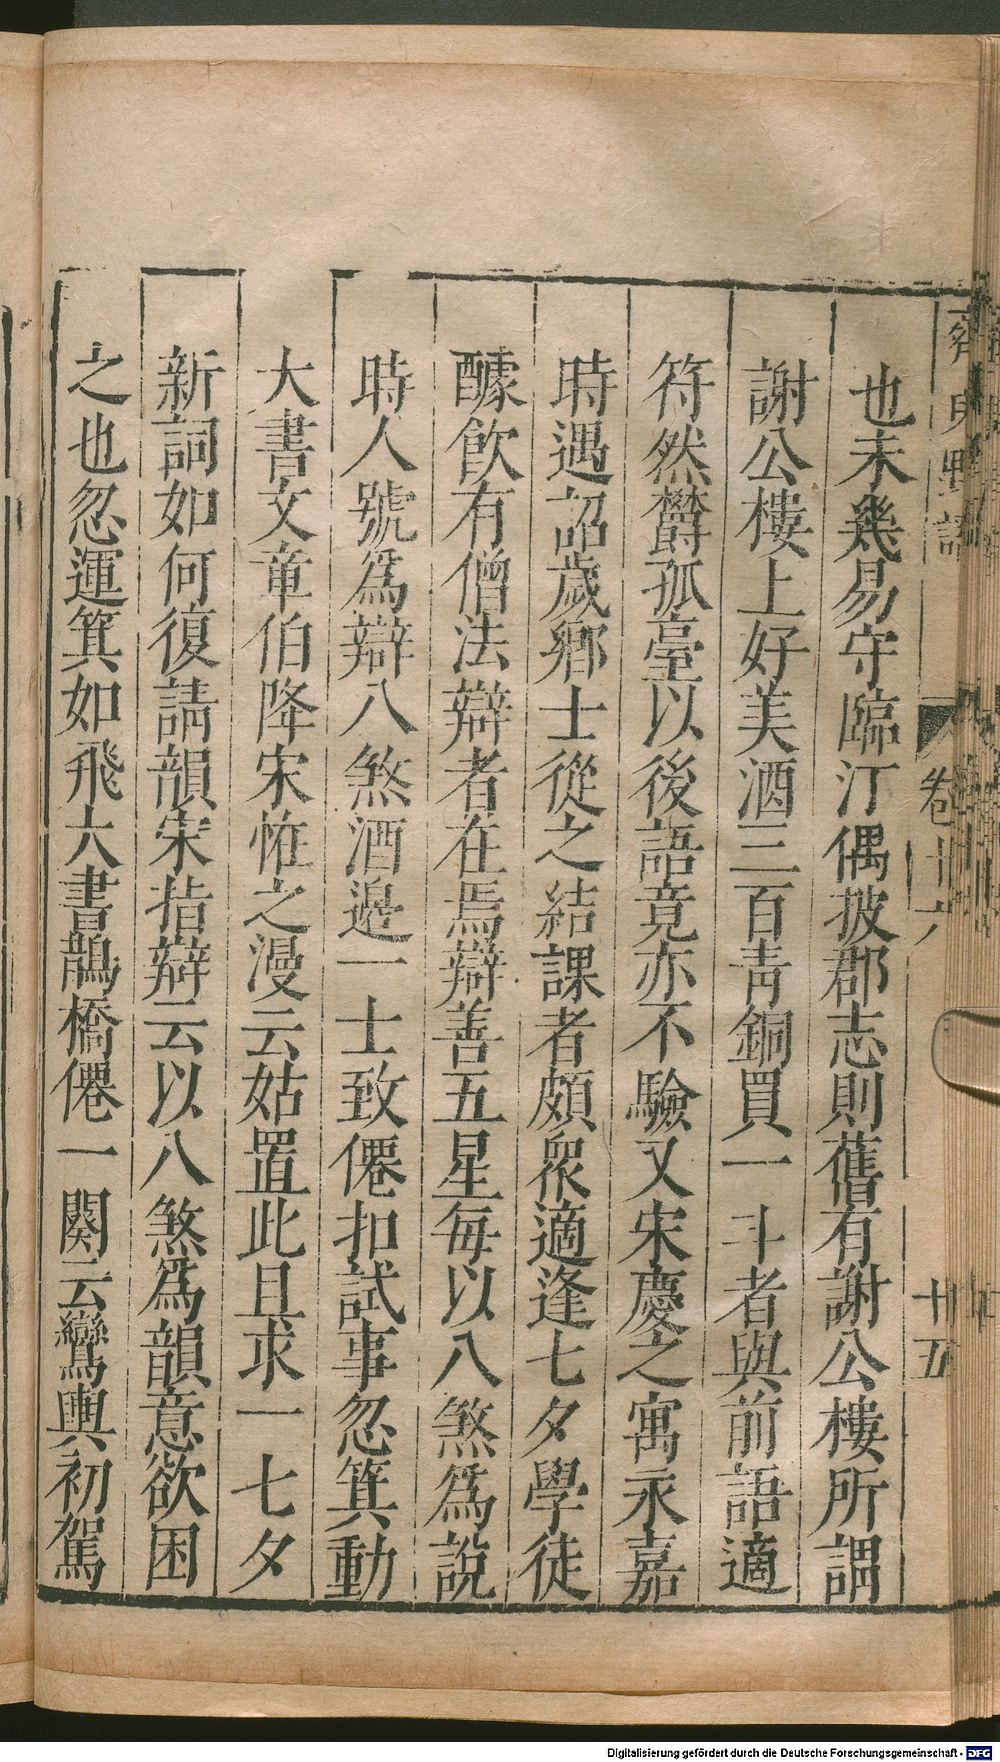 齊東野語
卷十六
十五
也未幾易守臨汀偶披郡志則舊有謝公樓所謂
謝公樓上好美酒三百青銅買一斗者與前語適
符然欝孤臺以後語竟亦不驗又宋慶之寓永嘉
時遇詔歲鄉士從之結課者頗衆適逢七夕學徒
醵飲有僧法辯者在焉辯善五星每以八煞爲說
時人號爲辯八煞酒邊一士致僊扣試事忽箕動
大書文章伯降宋恠之漫云姑置此且求一七夕
新詞如何復請韻宋指辯云以八煞爲韻意欲困
之也忽運箕如飛大書鵲橋僊一闋云鸞輿初駕
Digitalisierung gefördert durch die Deutsche Forschungsgemeinschaft - DFG